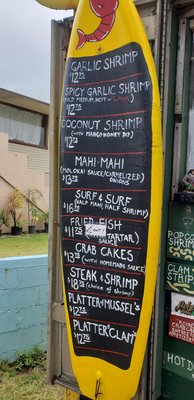 GARLIC SHRIMP
$12.75
SPICY GARLIC SHRIMP
(MILD, MEDIUM, HOT or LAVA)
$12.75
COCONUT SHRIMP
(WITH MANGO-HONEY DIP)
$12.75
MAHI-MAHI
(MOLOKAI SAUCE/CARMELIZED
ONIONS
$13.75
SURF & SURF
(HALF MAHI, HALF SHRIMP)
$13.75
FRIED FISH
TARTAR SAUCE)
$11.75
CRAB CAKES
(WITH HOMEMADE SAUCE)
$13.75
STEAK & SHRIMP
(choice of shrimp)
$18.75
PLATTER "MUSSEL'S"
$12.75
PLATTER "CLAM"
$12.75
POPCO
SHRIMP
CLAM
STRIPS